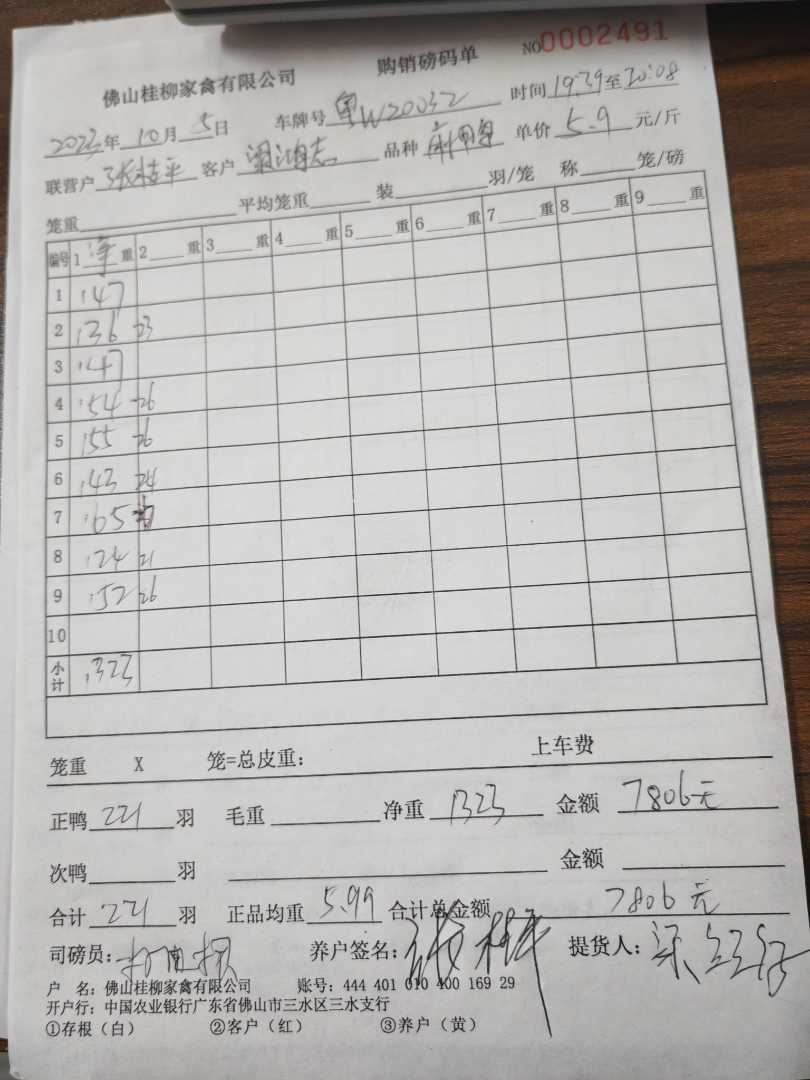 佛山桂柳家禽有限公司 购销磅码单 NO0002491
2023年10月5日 车牌号粤W20032 时间19:39至20:08
联营户张桂平 客户 品种 单价5.9元/斤
笼重 平均笼重 装 羽/笼 称 笼/磅
编号 1净重 2 重 3 重 4 重 5 重 6 重 7 重 8 重 9 重
1 147
2 136 23
3 147
4 154 26
5 155 26
6 143 24
7 165
8 124 21
9 152 26
10
小计 1323
笼重 X 笼=总皮重: 上车费
正鸭221羽 毛重 净重1323 金额7806元
次鸭 羽 金额
合计221羽 正品均重5.99 合计总金额7806元
司磅员: 养户签名:张桂平 提货人:
户 名: 佛山桂柳家禽有限公司 账号: 444 401 010 400 169 29
开户行: 中国农业银行广东省佛山市三水区三水支行
①存根(白) ②客户(红) ③养户(黄)